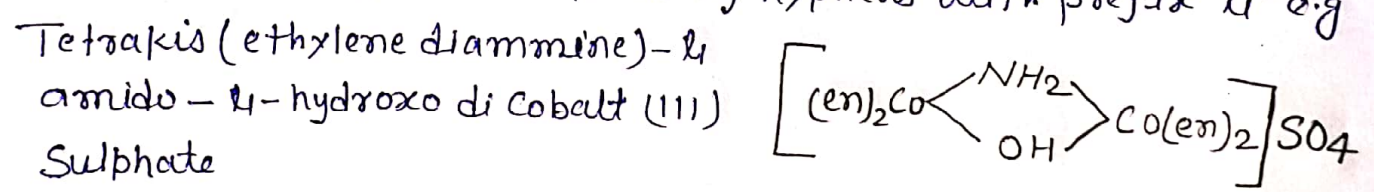 e.g
Tetrakis (ethylene diammine) - μ
amido - μ - hydroxo di Cobalt (III)
Sulphate
[(en)₂Co<NH2 OH>Co(en)2]SO4